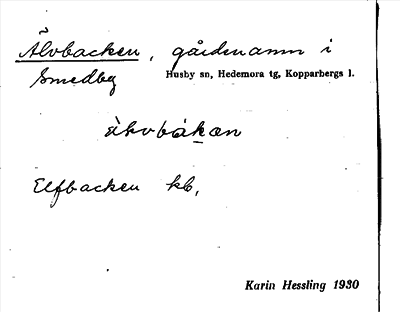 Älvbacken, gårdnamn i
Smedby Husby sn, Hedemora tg, Kopparbergs l.
Elfbacken kb,
Karin Hessling 1930